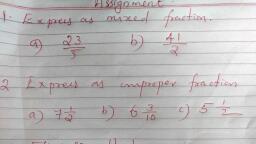 Assignment
1. Express as mixed fraction.
a) 23/5 b) 41/2
2 Express as improper fraction
a) 7 1/2 b) 6 3/10 c) 5 1/2